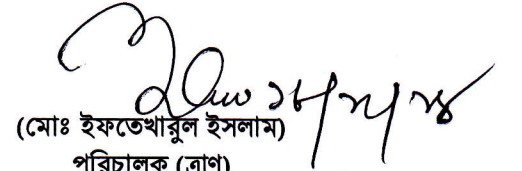 (মোঃ ইফতেখারুল ইসলাম)
পরিচালক (ত্রাণ)